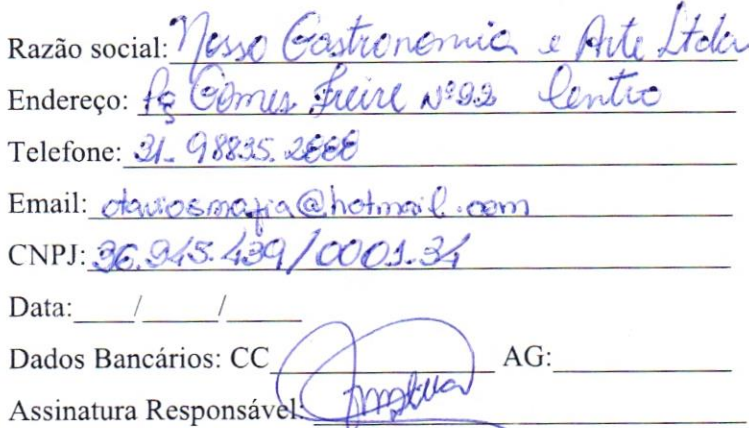 Razão social: Nosso Gastronomia e Arte Ltda
Endereço: Pç Gomes Freire Nº 92 Centro
Telefone: 31_ 98835.2666
Email: otaviosmafia@hotmail.com
CNPJ: 36.945.439/0001.34
Data:____/_____/______
Dados Bancários: CC AG:
Assinatura Responsável: